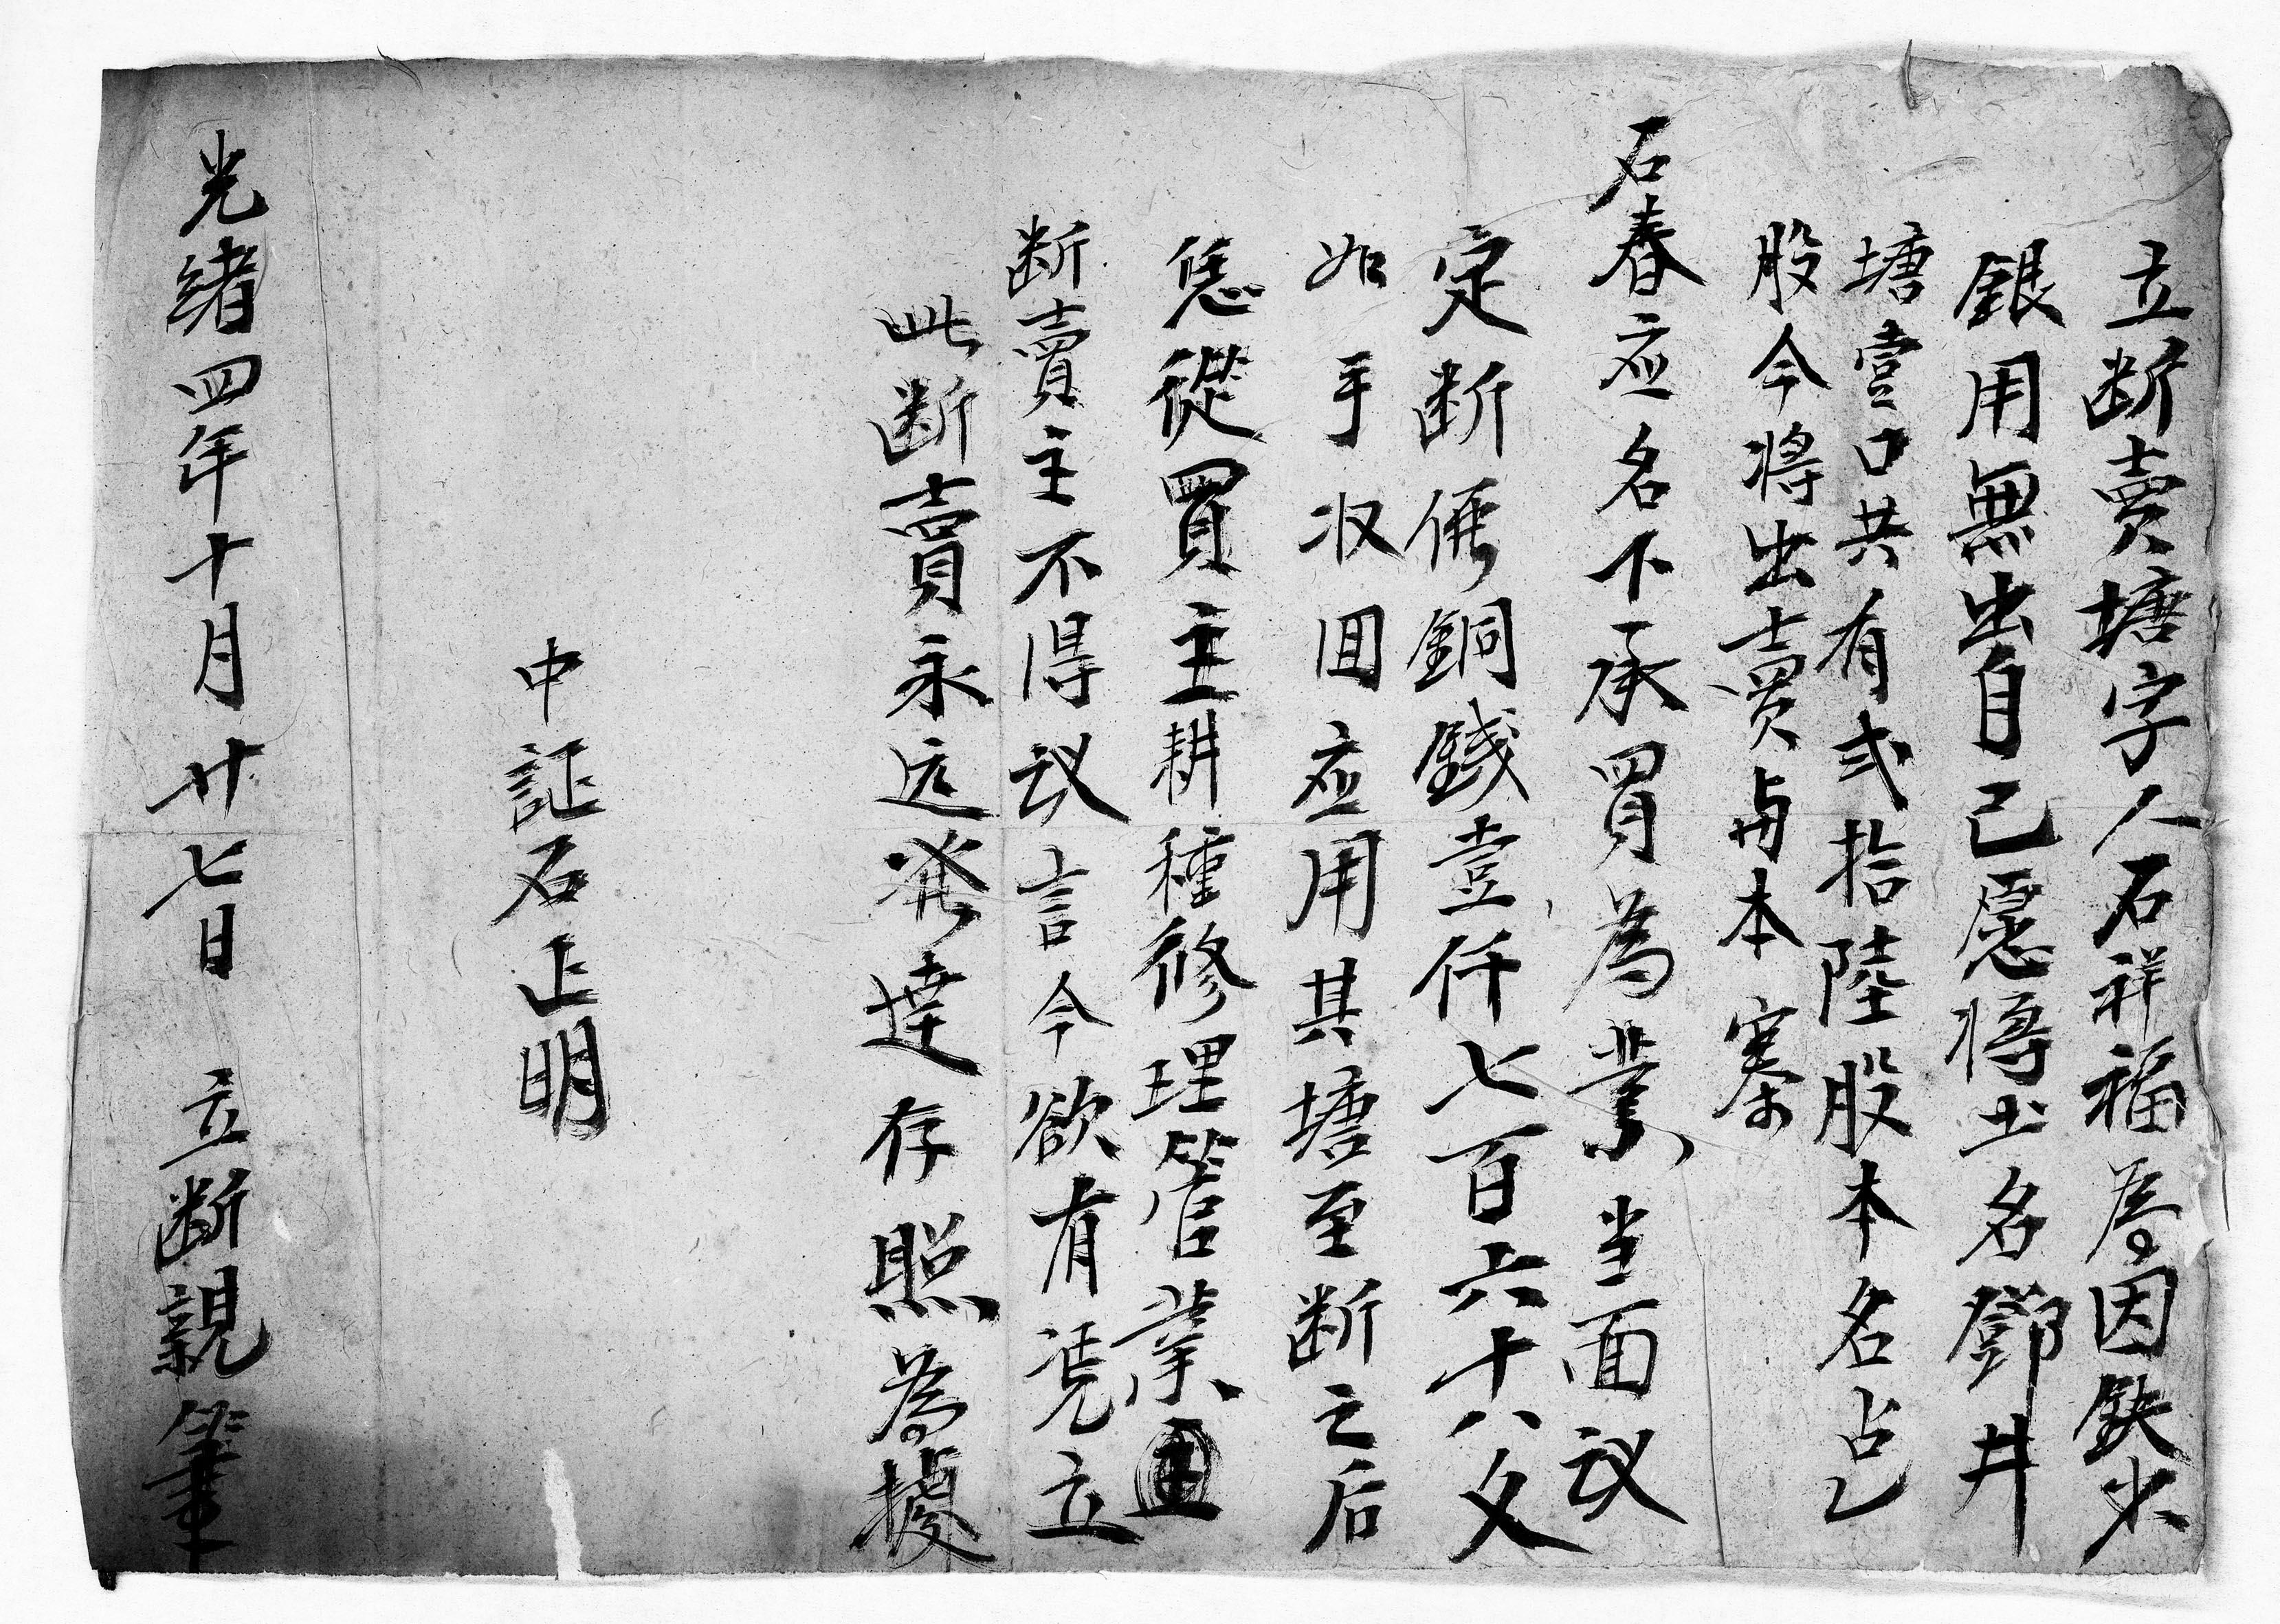 立断賣塘字人石祥福為因缺少
銀用無出自己愿將土名鄧井
塘壹口共有弍拾陸股本名占乙
股今將出賣与本寨
石春应名下承買為業当面议
定断價銅錢壹仟七百六十八文
如手收回应用其塘至断之后
恁從買主耕種修理管業
断賣主不得议言今欲有凴立
此断賣永远発達存照為據
中証石正明
光緒四年十月廿七日 立断親筆